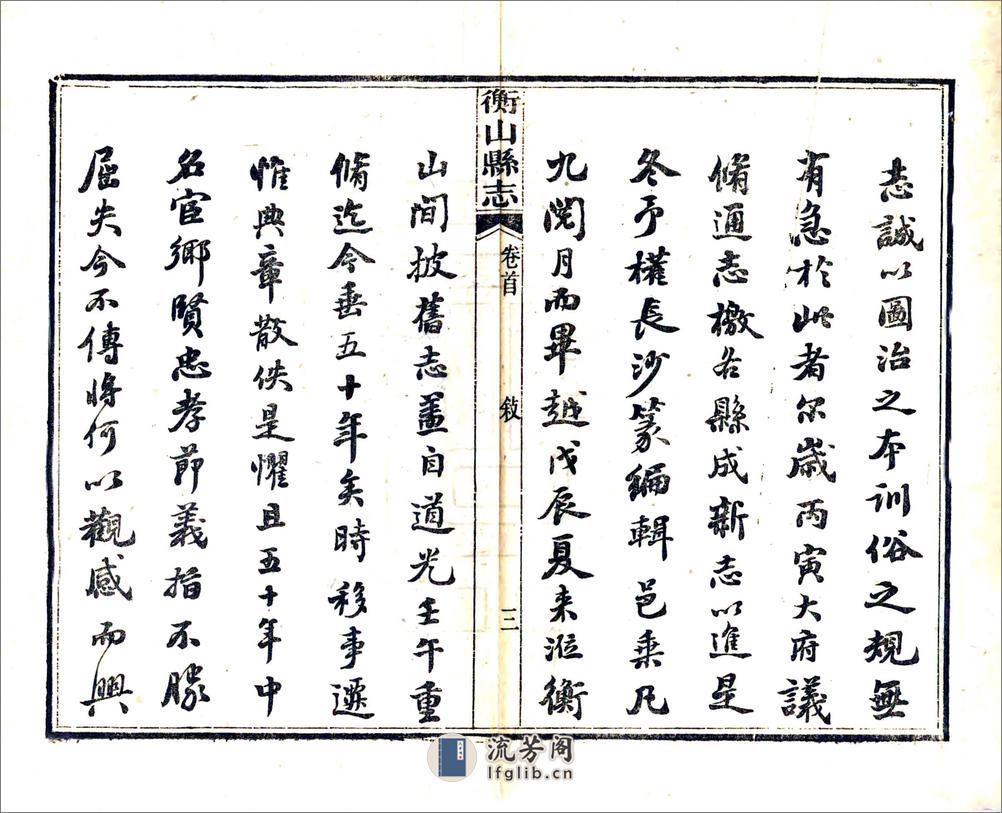 志誠以圖治之本訓俗之規無
有急於此者尔歲丙寅大府議
脩通志檄各縣成新志以進是
冬予權長沙篆編輯邑乘凡
九閱月而畢越戊辰夏来涖衡
衡山縣志
卷首
敘
三
山間披舊志蓋自道光壬午重
脩迄今垂五十年矣時移事遷
惟典章散佚是懼且五十年中
名宦鄉賢忠孝節義指不勝
屈失今不傳將何以觀感而興
流芳阁
lfglib.cn